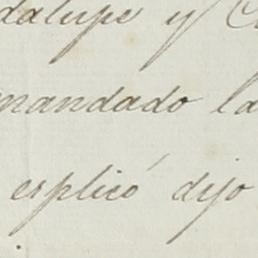 dalupe y C
mandado la
esplicó dijo